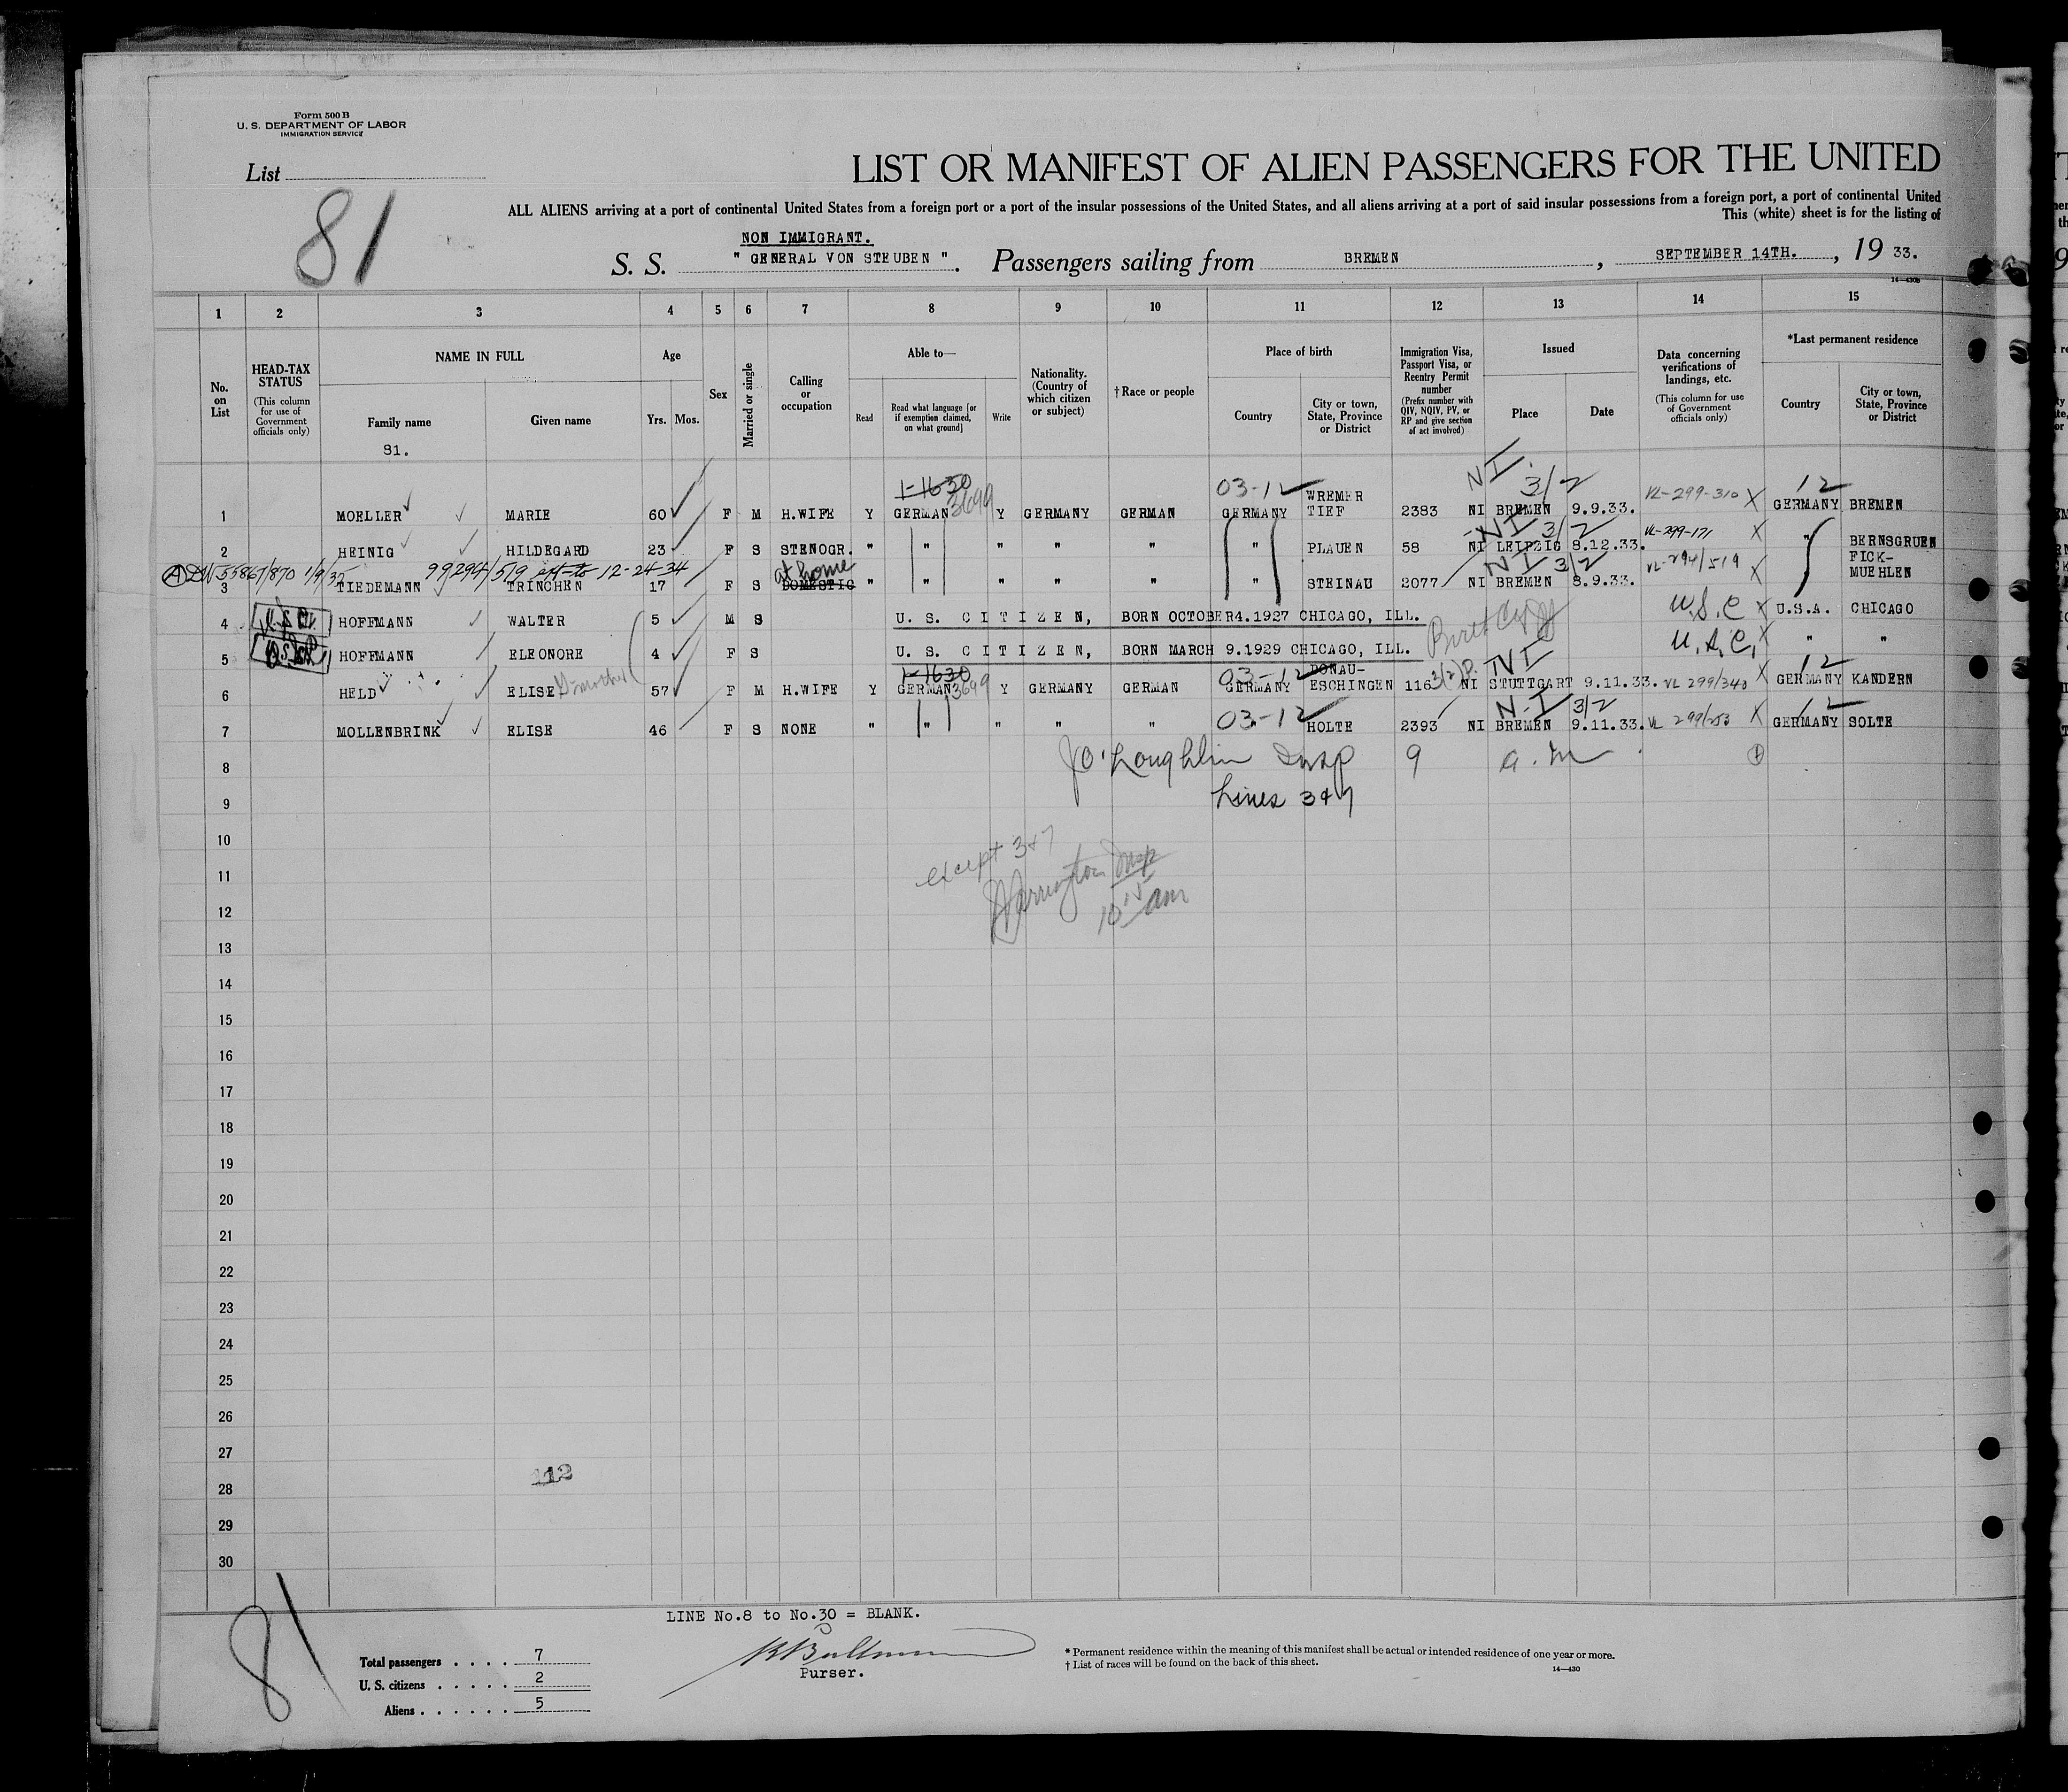 Form 500 B
U. S. DEPARTMENT OF LABOR
IMMIGRATION SERVICE
List
81
LIST OR MANIFEST OF ALIEN PASSENGERS FOR THE UNITED
ALL ALIENS arriving at a port of continental United States from a foreign port or a port of the insular possessions of the United States, and all aliens arriving at a port of said insular possessions from a foreign port, a port of continental United
This (white) sheet is for the listing of
NON IMMIGRANT.
S. S. " GENERAL VON STEUBEN ". Passengers sailing from BREMEN, SEPTEMBER 14TH., 19 33.
14—430B
1 2 3 4 5 6 7 8 9 10 11 12 13 14 15
No. on List
HEAD-TAX STATUS
(This column for use of Government officials only)
NAME IN FULL
Family name
Given name
81.
Age
Yrs. Mos.
Sex
Married or single
Calling or occupation
Able to—
Read
Read what language [or if exemption claimed, on what ground]
Write
Nationality. (Country of which citizen or subject)
†Race or people
Place of birth
Country
City or town, State, Province or District
Immigration Visa, Passport Visa, or Reentry Permit number
(Prefix number with QIV, NQIV, PV, or RP and give section of act involved)
Issued
Place
Date
Data concerning verifications of landings, etc.
(This column for use of Government officials only)
*Last permanent residence
Country
City or town, State, Province or District
1-1630 3699 03-12 NI 3/2 VL-299-310 X 12
1 MOELLER MARIE 60 F M H.WIFE Y GERMAN Y GERMANY GERMAN GERMANY WREMER TIEF 2383 NI BREMEN 9.9.33. GERMANY BREMEN
NI 3/2 VL-299-171 X
2 HEINIG HILDEGARD 23 F S STENOGR. " " " " " " PLAUEN 58 NI LEIPZIG 8.12.33. " BERNSGRUEN
99294/519 ext to 12-24-34 at home NI 3/2 VL-294/519 X
3 TIEDEMANN TRINCHEN 17 F S DOMESTIC " " " " " " STEINAU 2077 NI BREMEN 8.9.33. FICK-MUEHLEN
4 HOFFMANN WALTER 5 M S U. S. CITIZEN, BORN OCTOBER4.1927 CHICAGO, ILL. U.S.C X U.S.A. CHICAGO
5 HOFFMANN ELEONORE 4 F S U. S. CITIZEN, BORN MARCH 9.1929 CHICAGO, ILL. U.S.C. X " "
1-1630 3699 03-12 NI 12
6 HELD ELISE 57 F M H.WIFE Y GERMAN Y GERMANY GERMAN GERMANY DONAU-ESCHINGEN 116 NI STUTTGART 9.11.33. VL 299/340 X GERMANY KANDERN
03-12 N-I 3/2 12
7 MOLLENBRINK ELISE 46 F S NONE " " " " " HOLTE 2393 NI BREMEN 9.11.33. VL 299/253 X GERMANY SOLTE
8 O'Loughlin Insp 9 a.m
9 Lines 3&7
10 except 3&7
11 Harrington Insp
12 10 15 am
13
14
15
16
17
18
19
20
21
22
23
24
25
26
27
112
28
29
30
81
LINE No.8 to No.30 = BLANK.
Total passengers . . . . 7
U. S. citizens . . . . . 2
Aliens . . . . . . 5
Purser.
* Permanent residence within the meaning of this manifest shall be actual or intended residence of one year or more.
† List of races will be found on the back of this sheet.
14—430